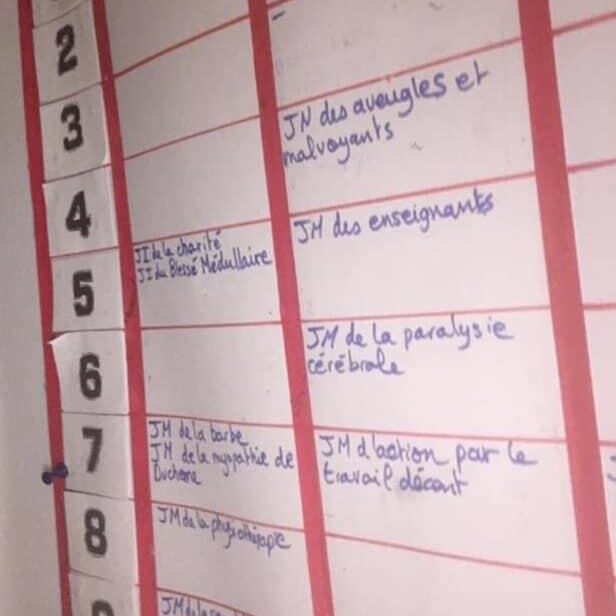 2
3
JN des aveugles et
malvoyants
4
JM des enseignants
5
JI de la charité
JI du Blessé Médullaire
6
JM de la paralysie
cérébrale
7
JM de la barbe
JM de la myopathie de
Duchene
JM d'action par le
travail décent
8
JM de la physiothérapie
JM de la